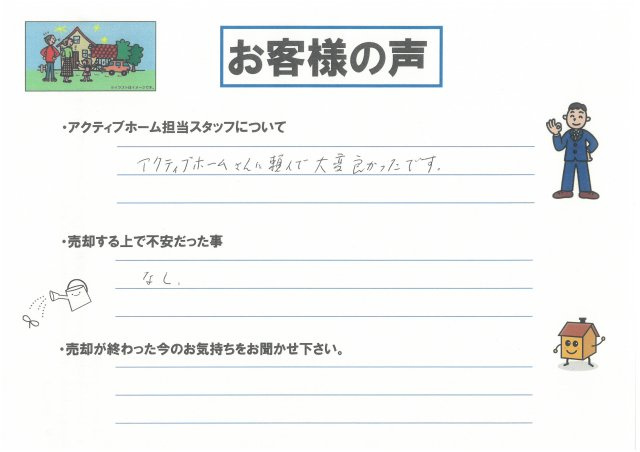 お客様の声
※イラストはイメージです。
・アクティブホーム担当スタッフについて
アクティブホームさんに頼んで大変良かったです.
・売却する上で不安だった事
なし.
・売却が終わった今のお気持ちをお聞かせ下さい。